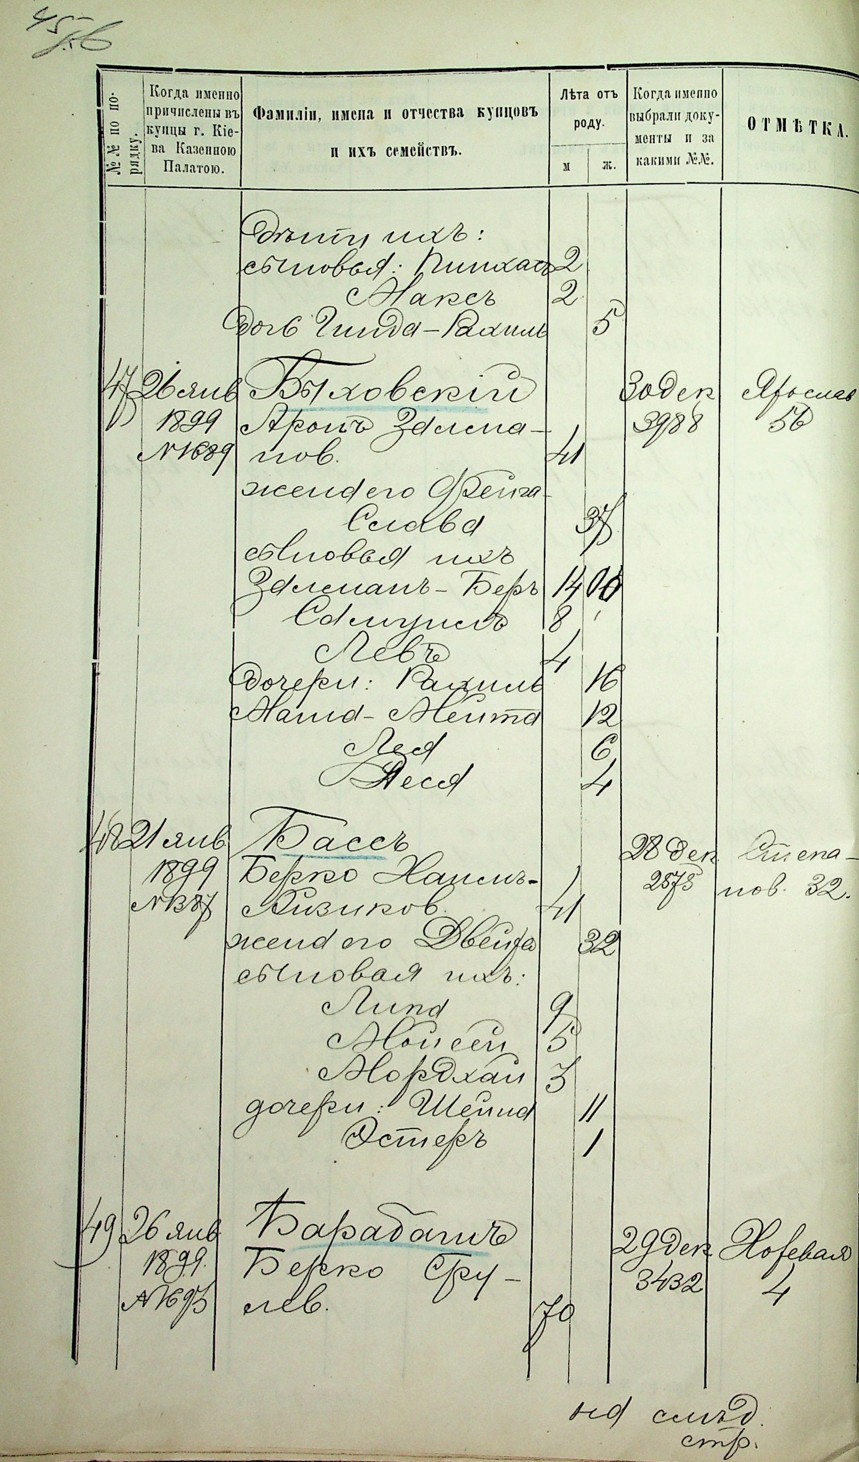 45
№№ по порядку.
Когда именно причислены въ купцы г. Кіева Казенною Палатою.
Фамиліи, имена и отчества купцовъ и ихъ семействъ.
Лѣта отъ роду.
м
ж.
Когда именно выбрали документы и за какими №№.
ОТМѢТКА.
Дѣти ихъ:
сыновья: Пинхасъ 2
Максъ 2
дочь Гинда-Рахиль 5
47 26 янв Быховскій 30 дек Ярослав
1899 Аронъ Залма- 3988 56
№ 1689 нов. 41
жена его Фейга-
Слава 37
сыновья ихъ
Залманъ-Беръ 14
Самуилъ 8
Левъ 4
дочери: Рахиль 16
Хана-Мента 12
Лея 6
Песя 4
48 21 янв Бассъ 28 дек Степа-
1899 Берко Хаимъ- 2575 нов. 32.
№ 1387 Айзиков. 41
жена его Двейра 32
сыновья ихъ:
Липа 9
Моисей 5
Мордхай 3
дочери: Шейна 11
Эстеръ 1
49 26 янв Барабашъ 29 дек Хоревая
1899 Берко Сру- 3432 4
№ 1695 лев. 70
на слѣд.
стр.